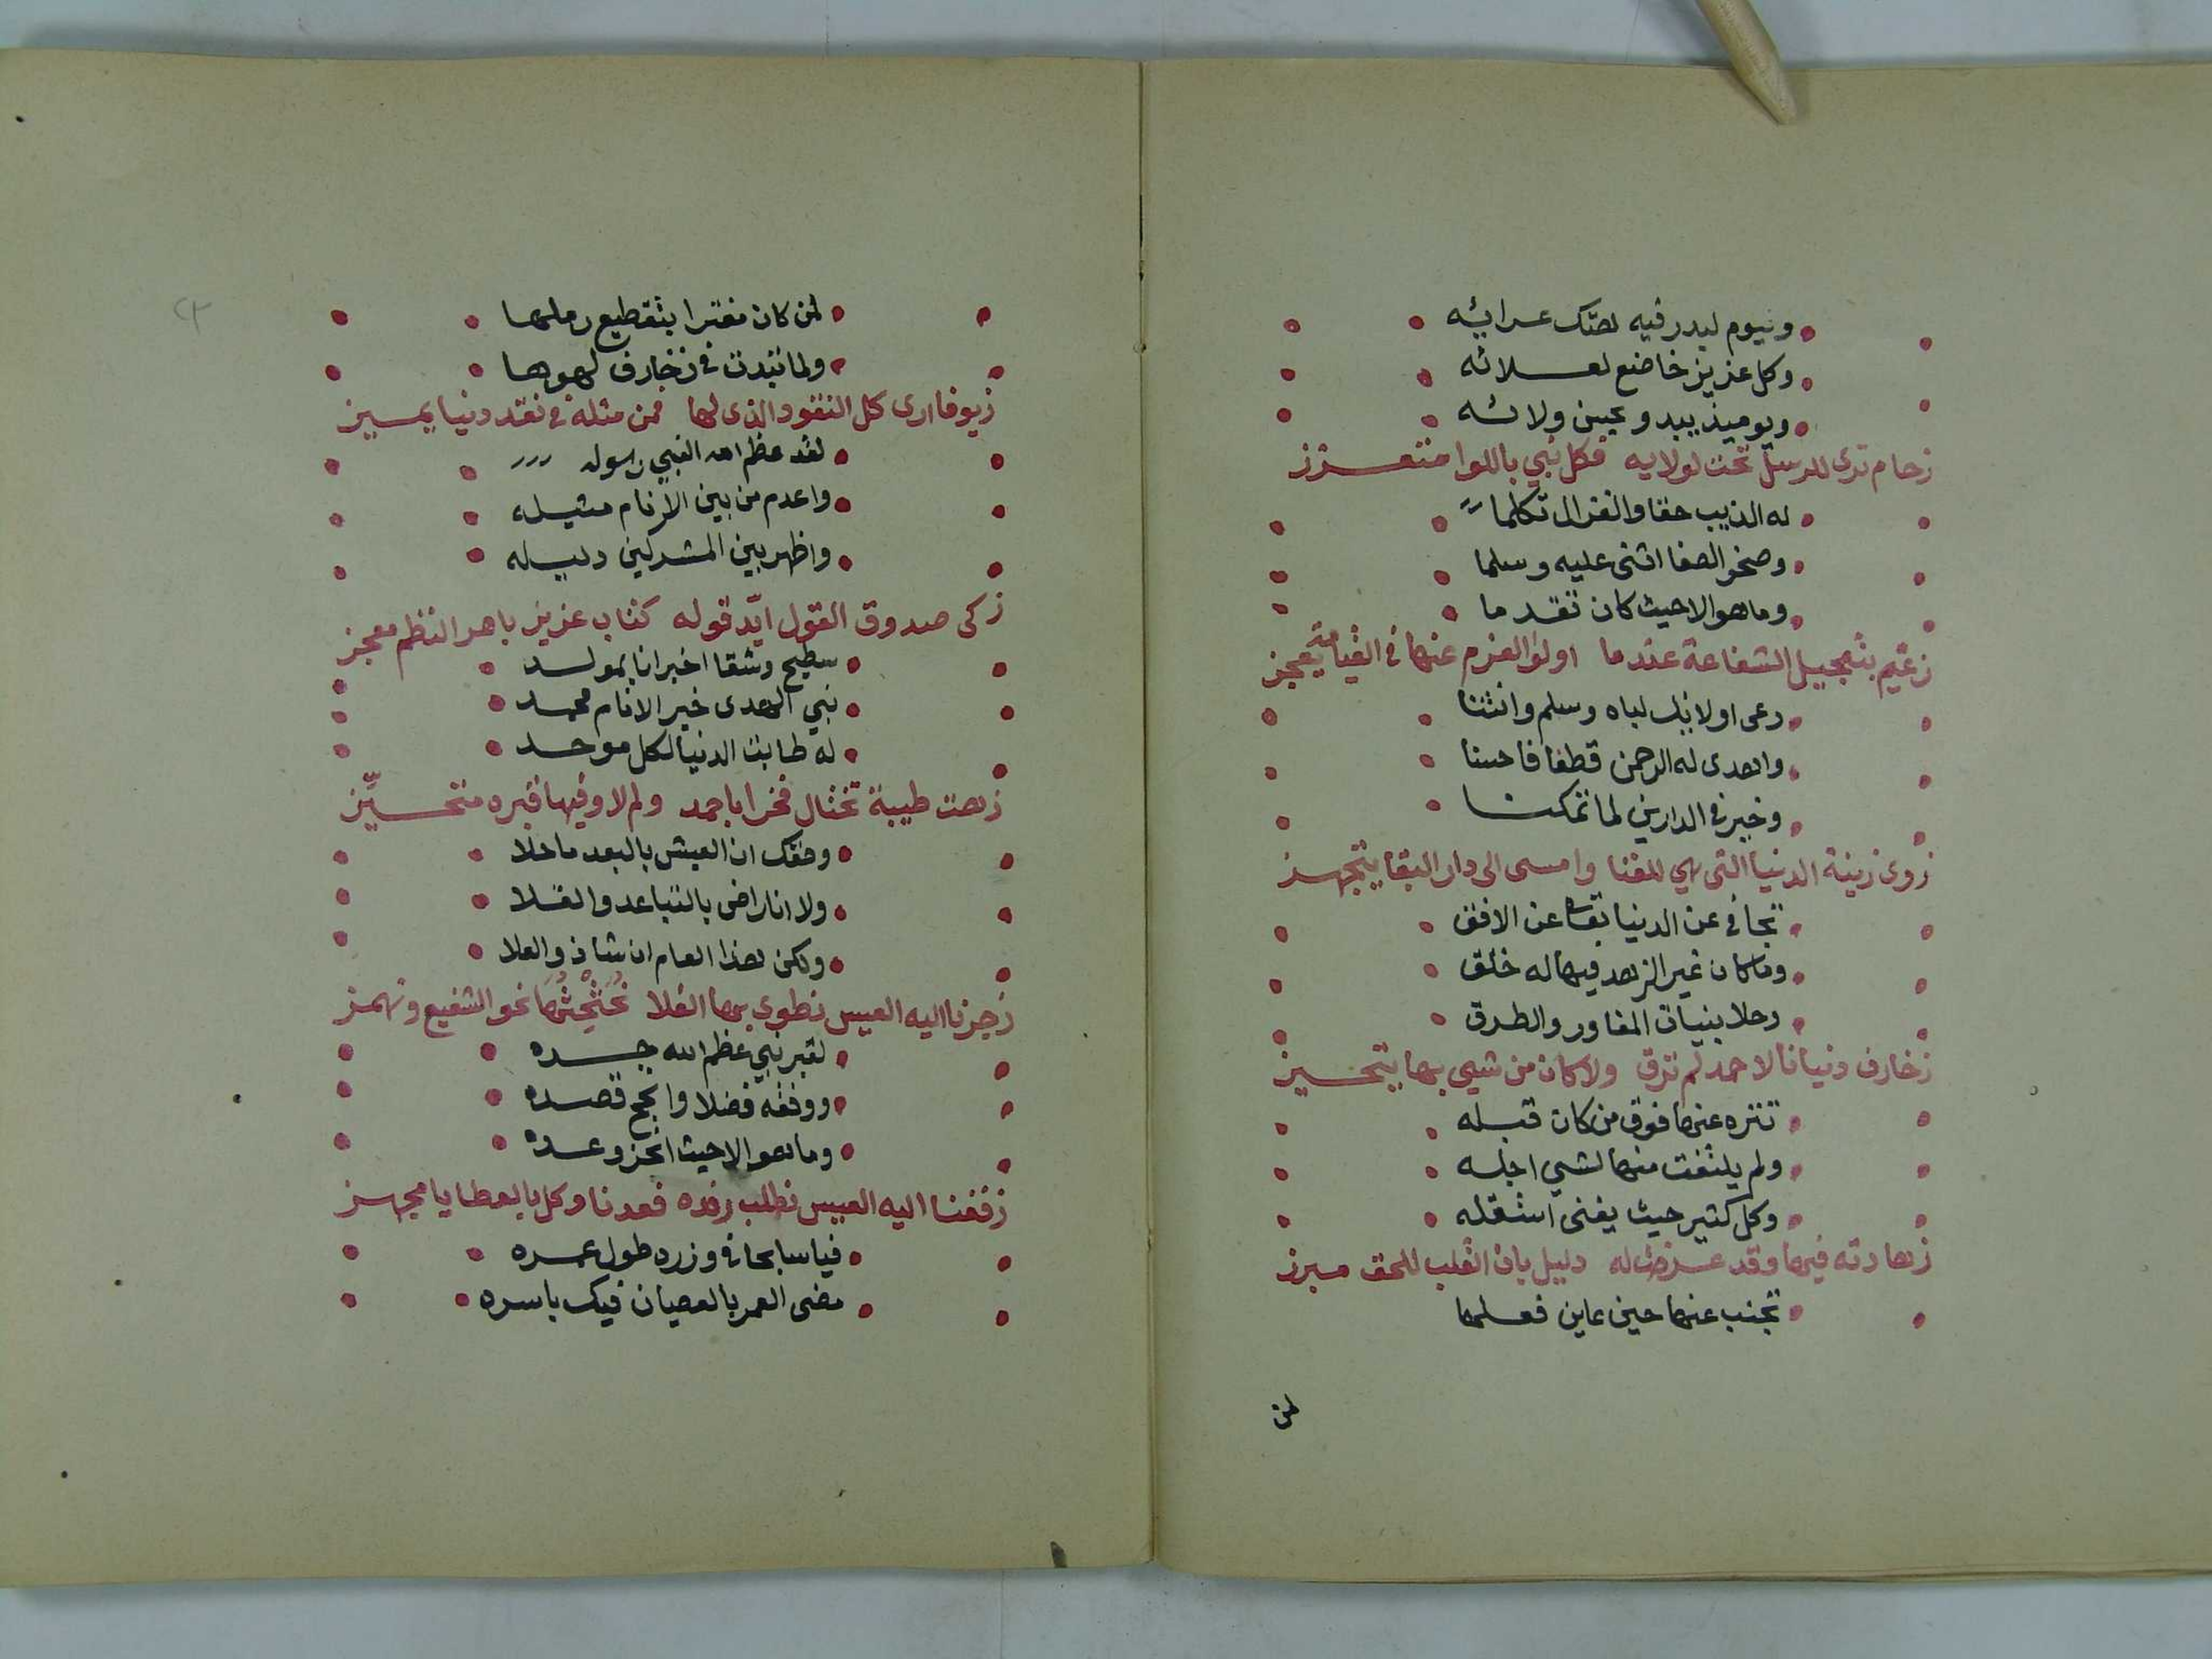 ويوم لبدر فيه لهتك عرائه
وكل عزيز خاضع لعلائه
ويوميذ يبدو عيين ولائه
زحام ترى للرسل تحت لولايه فكل نبي باللوا متعزز
له الذيب حقا والغزال تكلما
وصخر الصفا اثنى عليه وسلما
وما هو الا حيث كان تقدما
زعيم بتعجيل الشفاعة عندما اولوا العزم عنها في القيامة يعجز
دعى اولا لباه وسلم وانثنا
واهدى له الرحمن قطفا فاحسنا
وخير في الدارين لما تمكنا
زوى زينة الدنيا التي هي للفنا وامسى الى دار البقا يتجهز
تجافى عن الدنيا عن الافق
وما كان غير الزهد فيها له خلق
وحلا بنيات المفاور والطرق
زخارف دنيانا لاحمد لم ترق ولا كان من شيي بها يتحيز
تنزه عنها فوق من كان قبله
ولم يلتفت منها لشي اجله
وكل كثير حيث يفنى استقله
زهادته فيها وقد عرضت له دليل بان القلب للحق مبرز
تجنب عنها حين عاين فعلها
لمن
لمن كان مفترا بتقطيع رملها
ولما تبدت في زخارف لهوها
زيوفا ارى كل النقود الذي لها فمن مثله في نقد دنيا يميز
لقد عظم الله النبي رسوله
واعدم من بين الانام مثيله
واظهر بين المشركين دليله
زكى صدوق القول ايّد قوله كتاب عزيز باهر النظم معجز
سطيح وشقا اخبرانا بمولد
نبي الهدى خير الانام محمد
له طابت الدنيا لكل موحد
زهت طيبة تختال فخرا باحمد ولم لا وفيها قبره متحيّز
وحقك ان العيش بالبعد ما حلا
ولا انا راضى بالتباعد والقلا
ولكن لهذا العام ان شا ذو العلا
زجرنا اليه العيس نطوي بها الفلا نحثحثها نحو الشفيع ونهمز
لقبر نبي عظم الله جده
ووفقه فضلا وانجح قصده
وما هو الا حيث انجز وعده
زففنا اليه العيس نطلب رفده فعدنا وكل بالعطايا مجهز
فيا سابحا في وزره طول عمره
مضى العمر بالعصيان فيك باسره